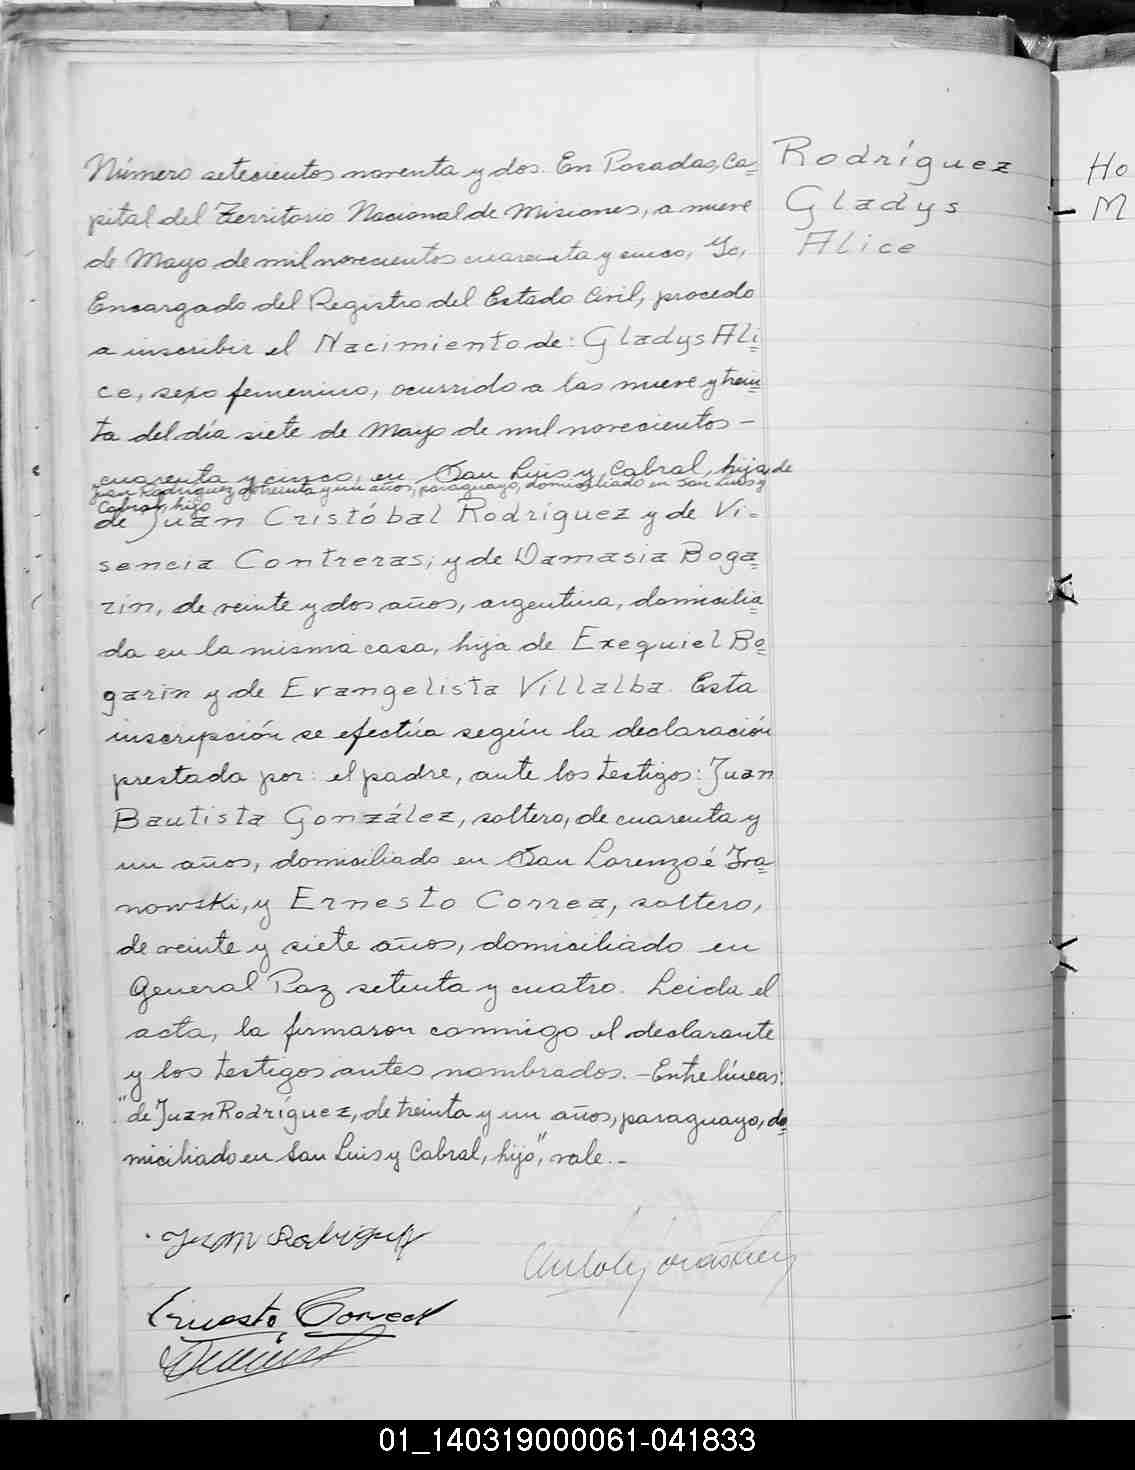 Número setecientos noventa y dos. En Posadas, Ca=
pital del Territorio Nacional de Misiones, a nueve
de Mayo de mil novecientos cuarenta y cinco, Yo,
Encargado del Registro del Estado Civil, procedo
a inscribir el Nacimiento de: Gladys Ali=
ce, sexo femenino, ocurrido a las nueve y trein=
ta del día siete de Mayo de mil novecientos —
cuarenta y cinco, en San Luis y Cabral, hija de
Juan Rodríguez, de treinta y un años, paraguayo, domiciliado en San Luis y
Cabral, hijo
de Juan Cristóbal Rodríguez y de Vi=
sencia Contreras; y de Damasia Boga=
rin, de veinte y dos años, argentina, domicilia=
da en la misma casa, hija de Exequiel Bo=
garin y de Evangelista Villalba. Esta
inscripción se efectúa según la declaración
prestada por: el padre, ante los testigos: Juan
Bautista González, soltero, de cuarenta y
un años, domiciliado en San Lorenzo é Ira=
nowski, y Ernesto Correa, soltero,
de veinte y siete años, domiciliado en
General Paz setenta y cuatro. Leida el
acta, la firmaron conmigo el declarante
y los testigos antes nombrados. — Entre líneas:
"de Juan Rodríguez, de treinta y un años, paraguayo, do=
miciliado en San Luis y Cabral, hijo", vale. —
Juan Rodriguez
Ernesto Correa
Rodríguez
Gladys
Alice
Ho
M
01_140319000061-041833